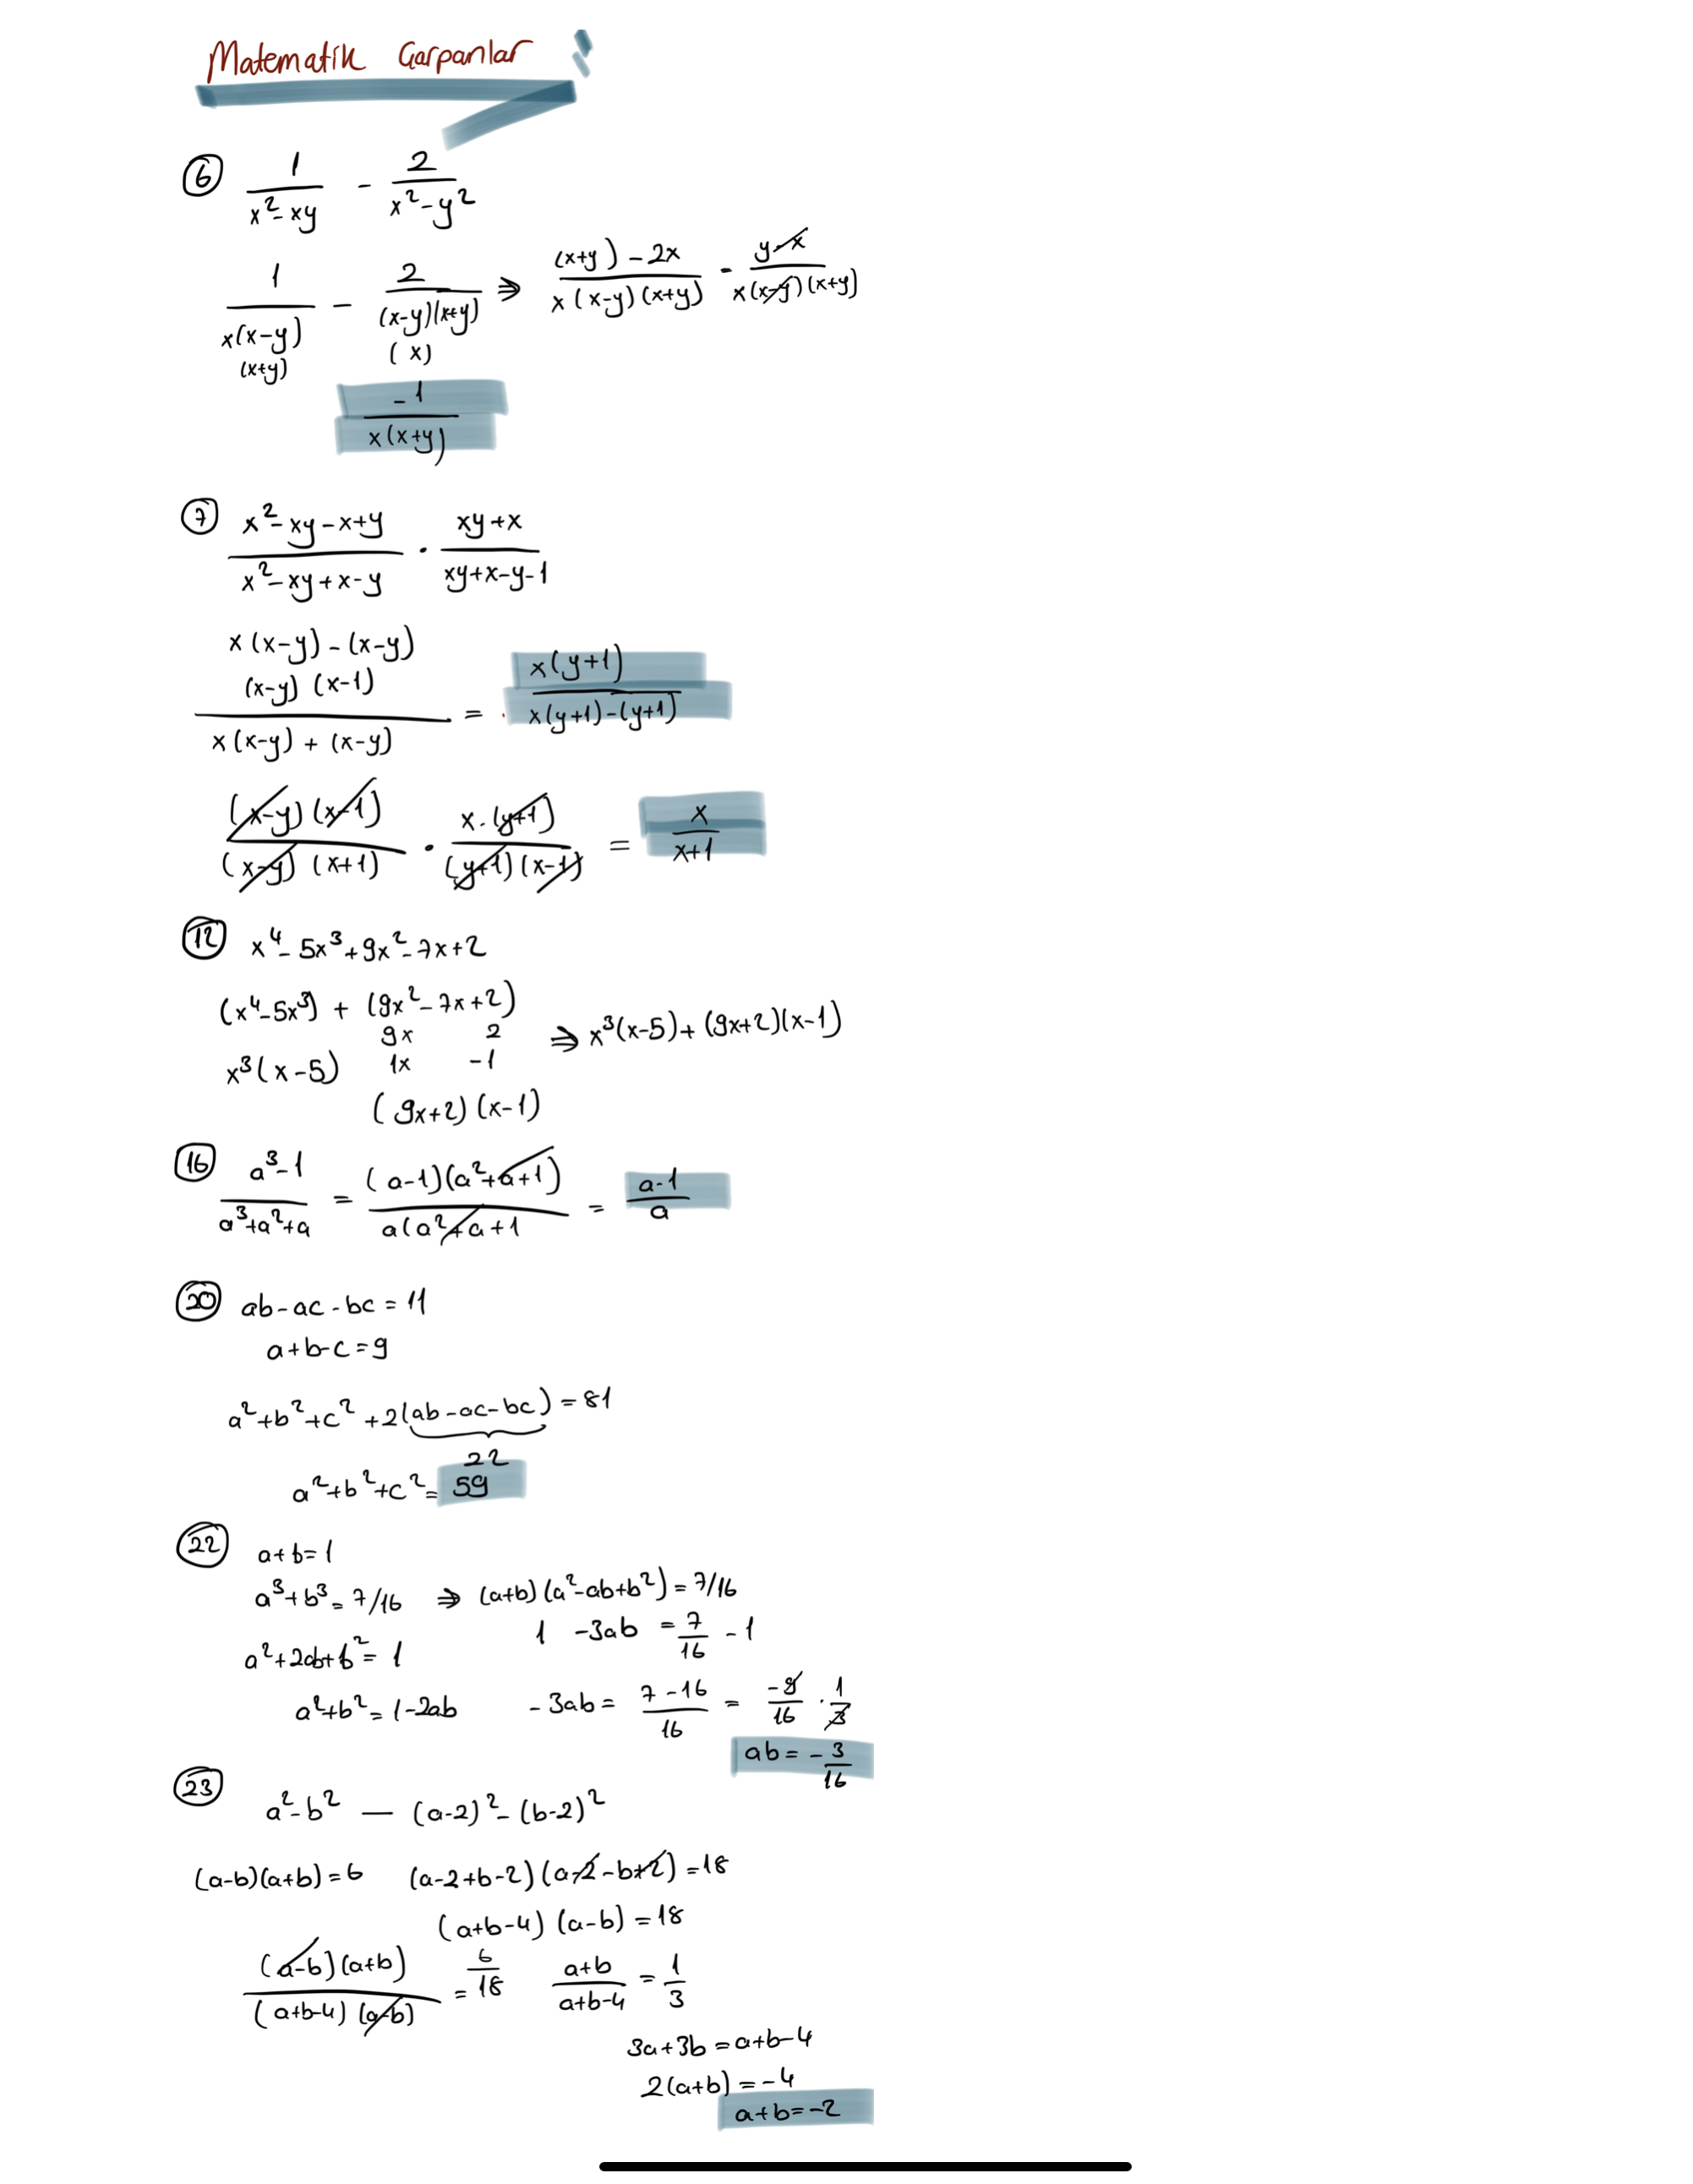 Matematik Çarpanlar
6) 1/(x²-xy) - 2/(x²-y²)
1/(x(x-y)) - 2/((x-y)(x+y)) ⇒ ((x+y)-2x)/(x(x-y)(x+y)) - (y-x)/(x(x-y)(x+y))
(x+y) (x)
-1/(x(x+y))
7) (x²-xy-x+y)/(x²-xy+x-y) · (xy+x)/(xy+x-y-1)
x(x-y)-(x-y)
(x-y)(x-1)/(x(x-y)+(x-y)) = · x(y+1)/(x(y+1)-(y+1))
(x-y)(x-1)/((x-y)(x+1)) · x·(y+1)/((y+1)(x-1)) = x/(x+1)
12) x⁴-5x³+9x²-7x+2
(x⁴-5x³) + (9x²-7x+2)
9x 2 ⇒ x³(x-5)+(9x+2)(x-1)
x³(x-5) 1x -1
(9x+2)(x-1)
16) (a³-1)/(a³+a²+a) = (a-1)(a²+a+1)/(a(a²+a+1) = (a-1)/a
20) ab-ac-bc=11
a+b-c=9
a²+b²+c²+2(ab-ac-bc)=81
22
a²+b²+c²=59
22) a+b=1
a³+b³=7/16 ⇒ (a+b)(a²-ab+b²)=7/16
1 -3ab = 7/16 - 1
a²+2ab+b²=1
a²+b²=1-2ab -3ab = (7-16)/16 = -9/16 · 1/3
ab=-3/16
23) a²-b² — (a-2)²-(b-2)²
(a-b)(a+b)=6 (a-2+b-2)(a-2-b+2)=18
(a+b-4)(a-b)=18
(a-b)(a+b)/((a+b-4)(a-b)) = 6/18 (a+b)/(a+b-4) = 1/3
3a+3b=a+b-4
2(a+b)=-4
a+b=-2